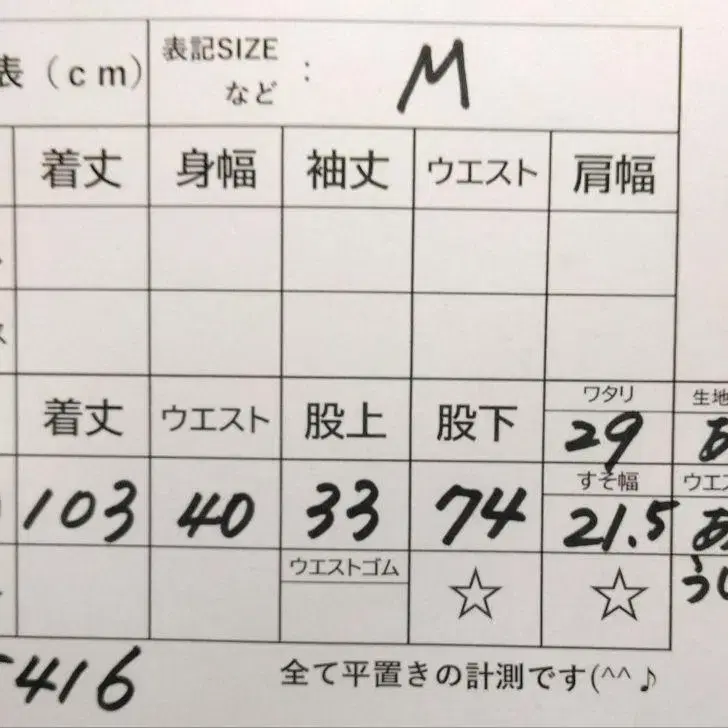 表（cm） 表記SIZE
など : M
着丈 身幅 袖丈 ウエスト 肩幅
ワタリ 生地
着丈 ウエスト 股上 股下 29
すそ幅 ウエス
103 40 33 74 21.5
ウエストゴム ☆ ☆
416
全て平置きの計測です(^^♪